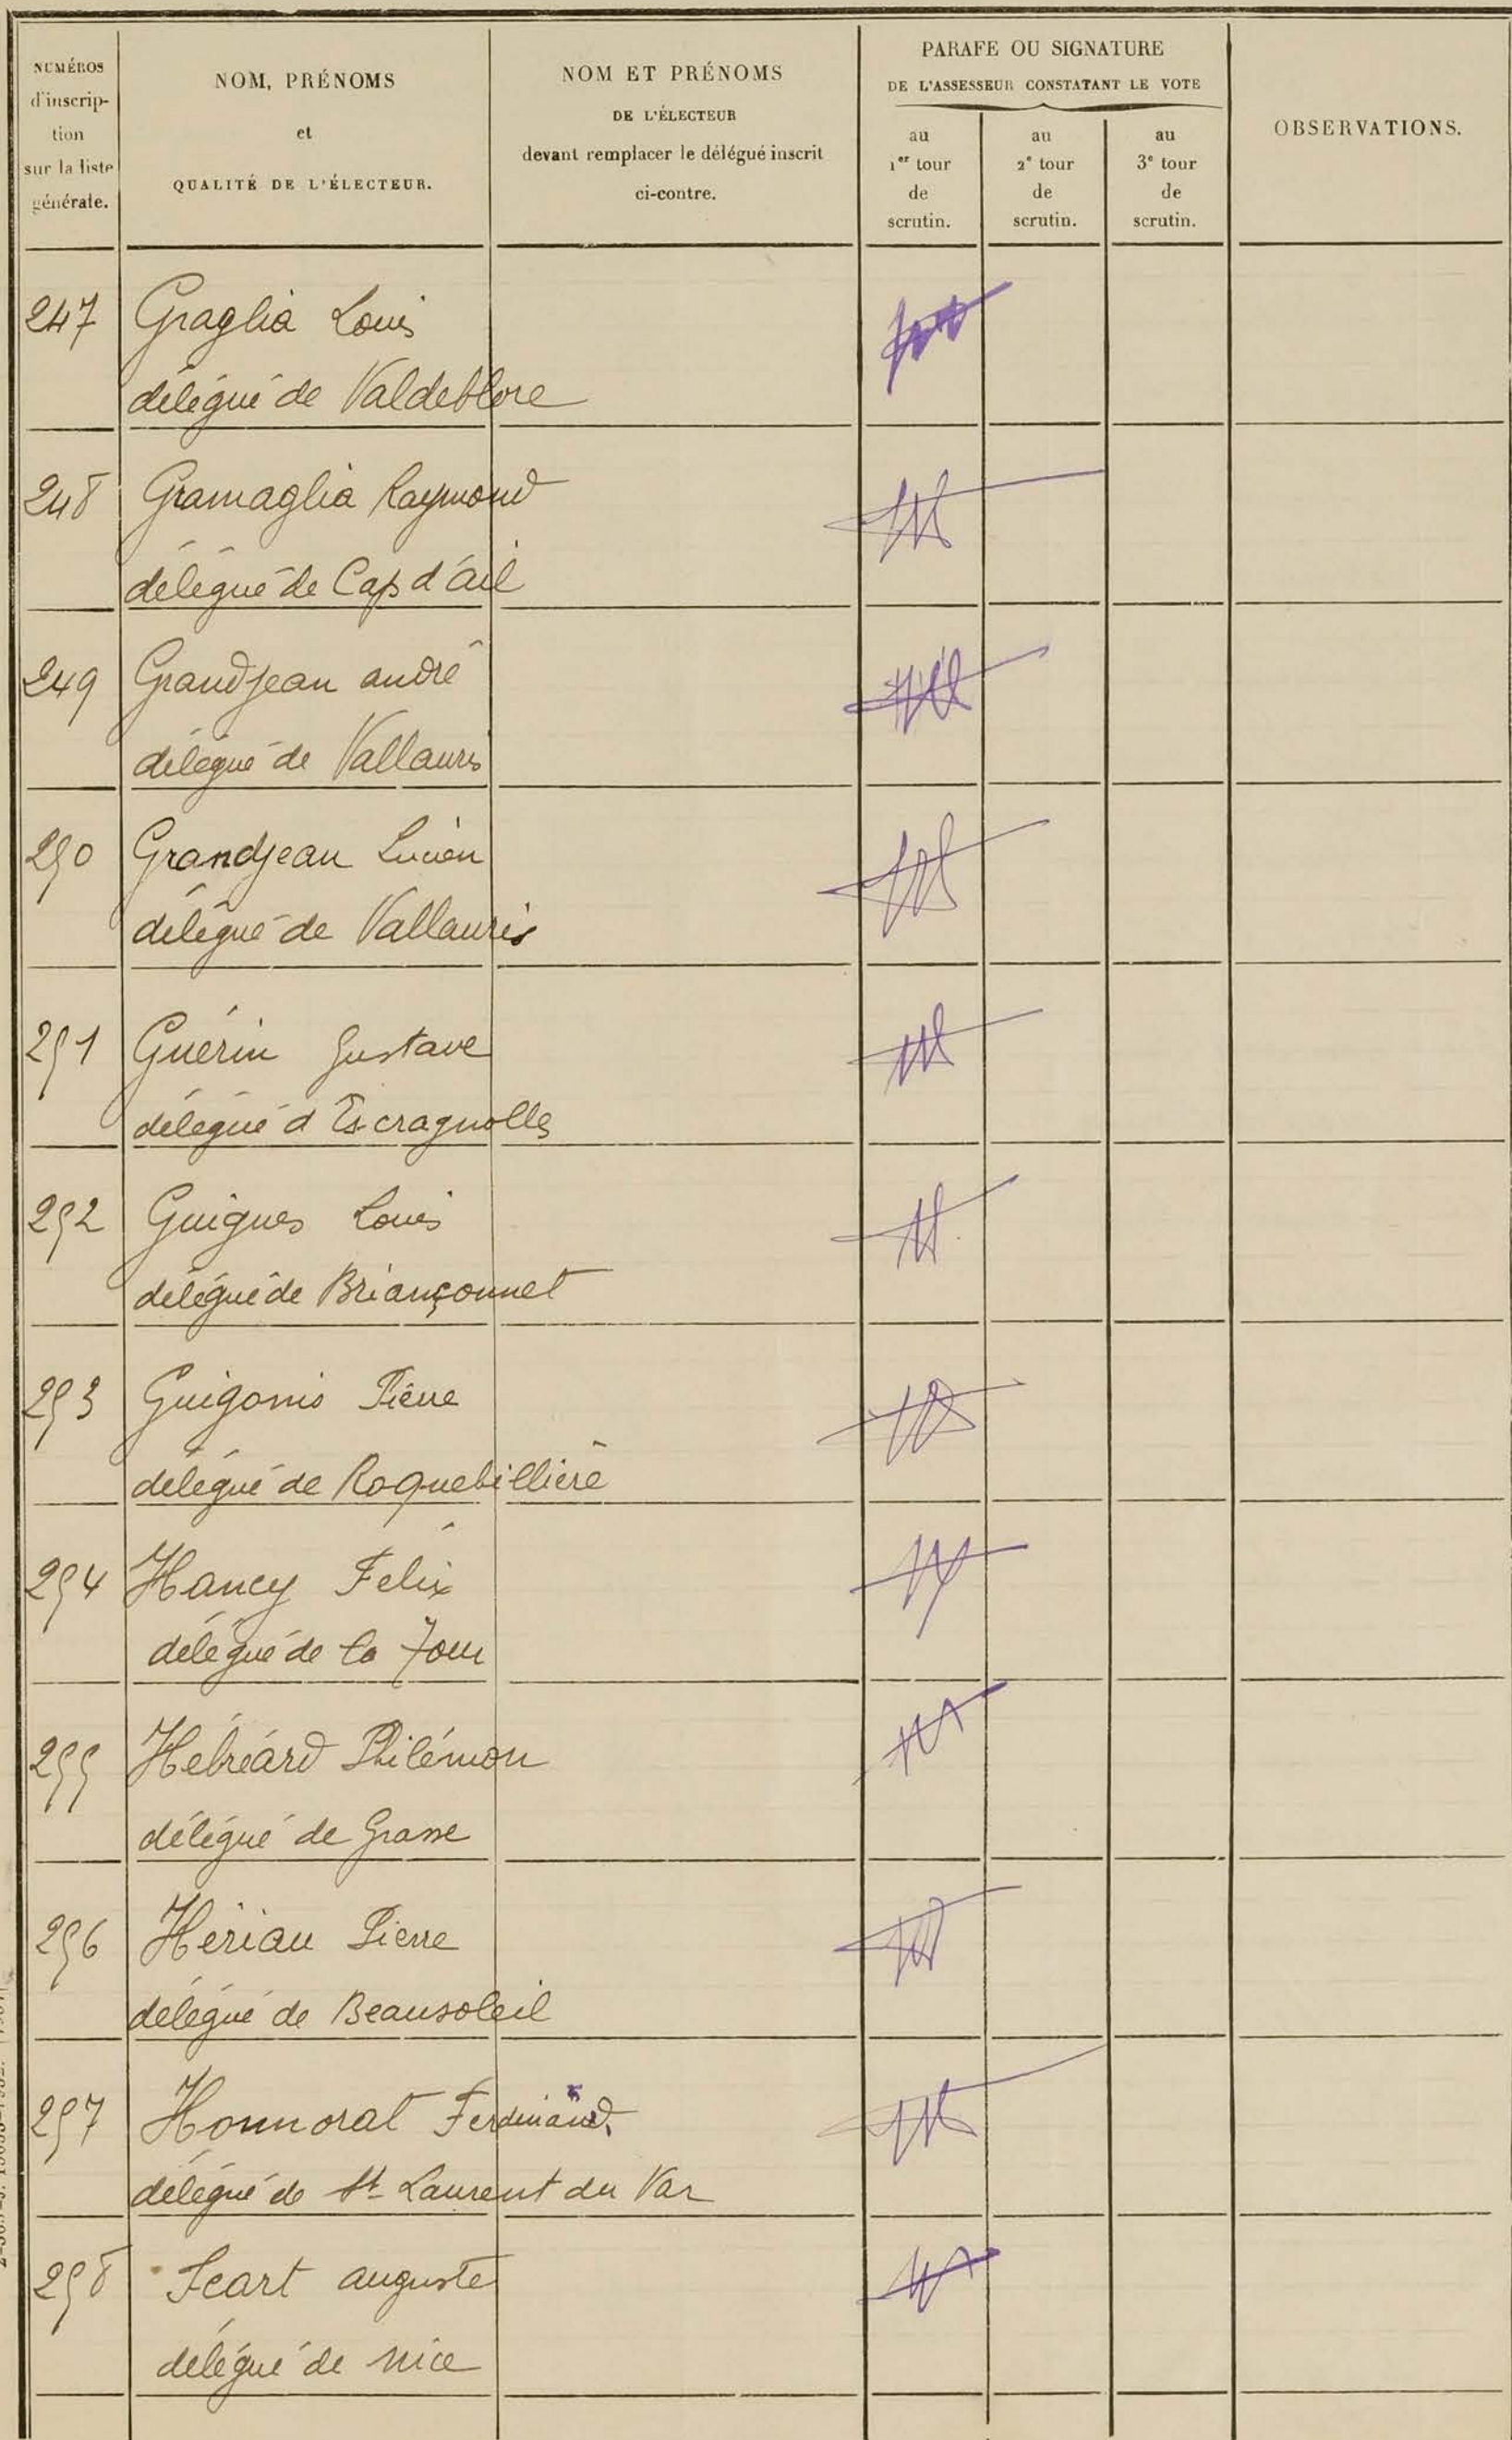 NUMÉROS
d'inscrip-
tion
sur la liste
générale.
NOM, PRÉNOMS
et
QUALITÉ DE L'ÉLECTEUR.
NOM ET PRÉNOMS
DE L'ÉLECTEUR
devant remplacer le délégué inscrit
ci-contre.
PARAFE OU SIGNATURE
DE L'ASSESSEUR CONSTATANT LE VOTE
au
1er tour
de
scrutin.
au
2e tour
de
scrutin.
au
3e tour
de
scrutin.
OBSERVATIONS.
247 Graglia Louis
délégué de Valdeblore
248 Gramaglia Raymond
délégué de Cap d'ail
249 Grandjean andré
délégué de Vallauris
250 Grandjean Lucien
délégué de Vallauris
251 Guérin Gustave
délégué d'Escragnolles
252 Guigues Louis
délégué de Briançonnet
253 Guigonis Pierre
délégué de Roquebillière
254 Hancy Félix
délégué de la Tour
255 Hébréard Philémon
délégué de Grasse
256 Hériau Pierre
délégué de Beausoleil
257 Honnorat Ferdinand
délégué de St Laurent du Var
258 Icart auguste
délégué de nice